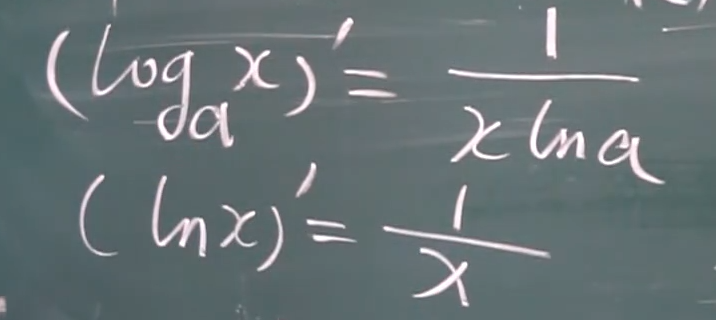 (logₐx)′ = 1/(x ln a)
(ln x)′ = 1/x